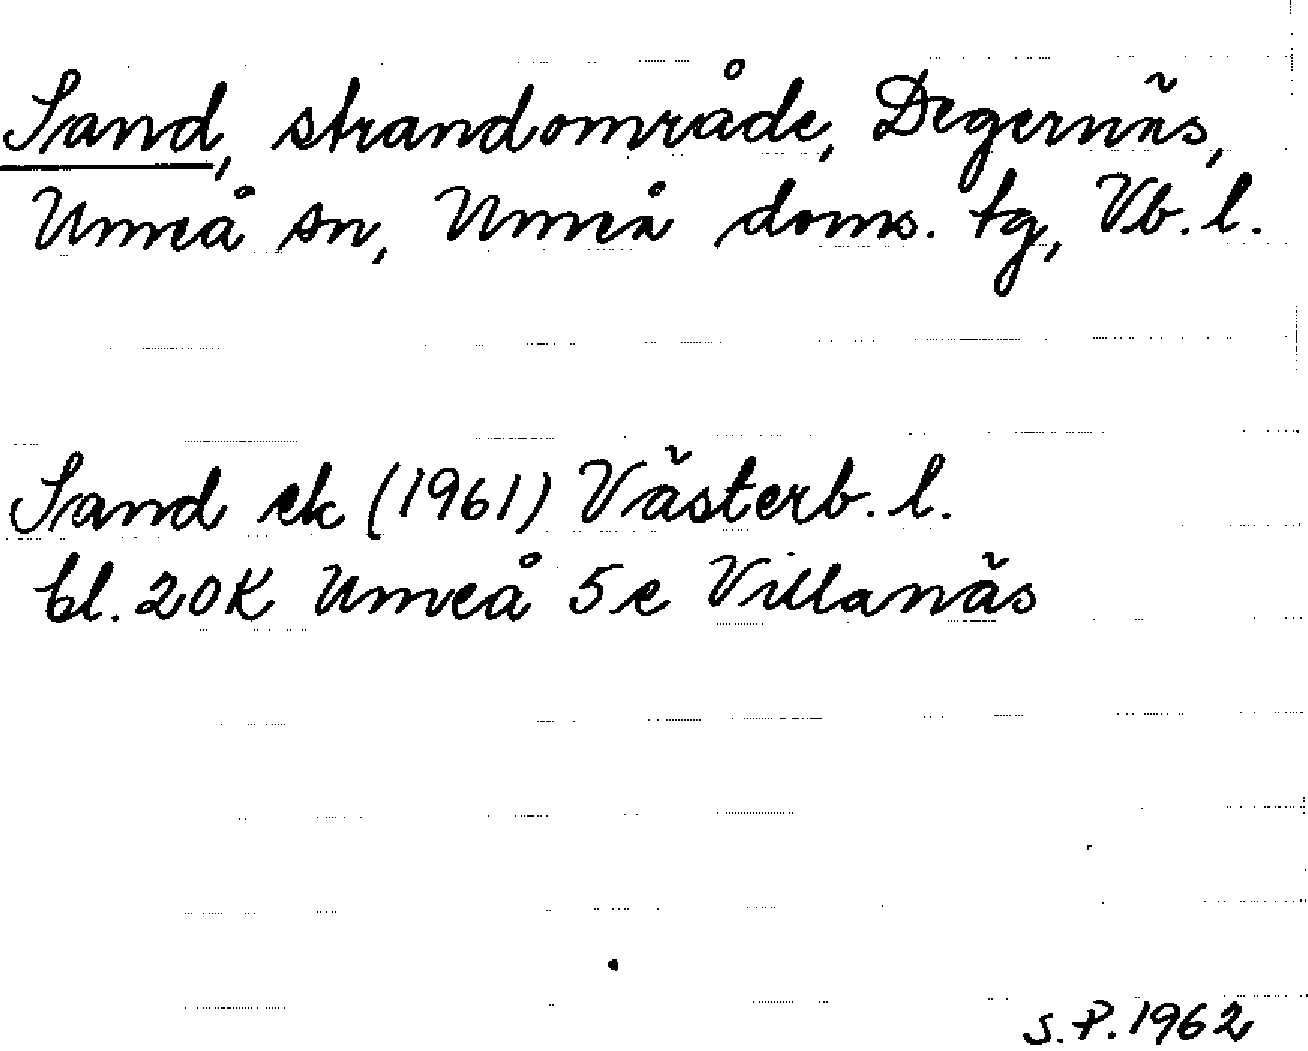 Sand, strandområde, Degernäs,
Umeå sn, Umeå doms. tg, Vb. l.
Sand ek (1961) Västerb. l.
bl. 20K Umeå 5e Villanäs
S.P. 1962